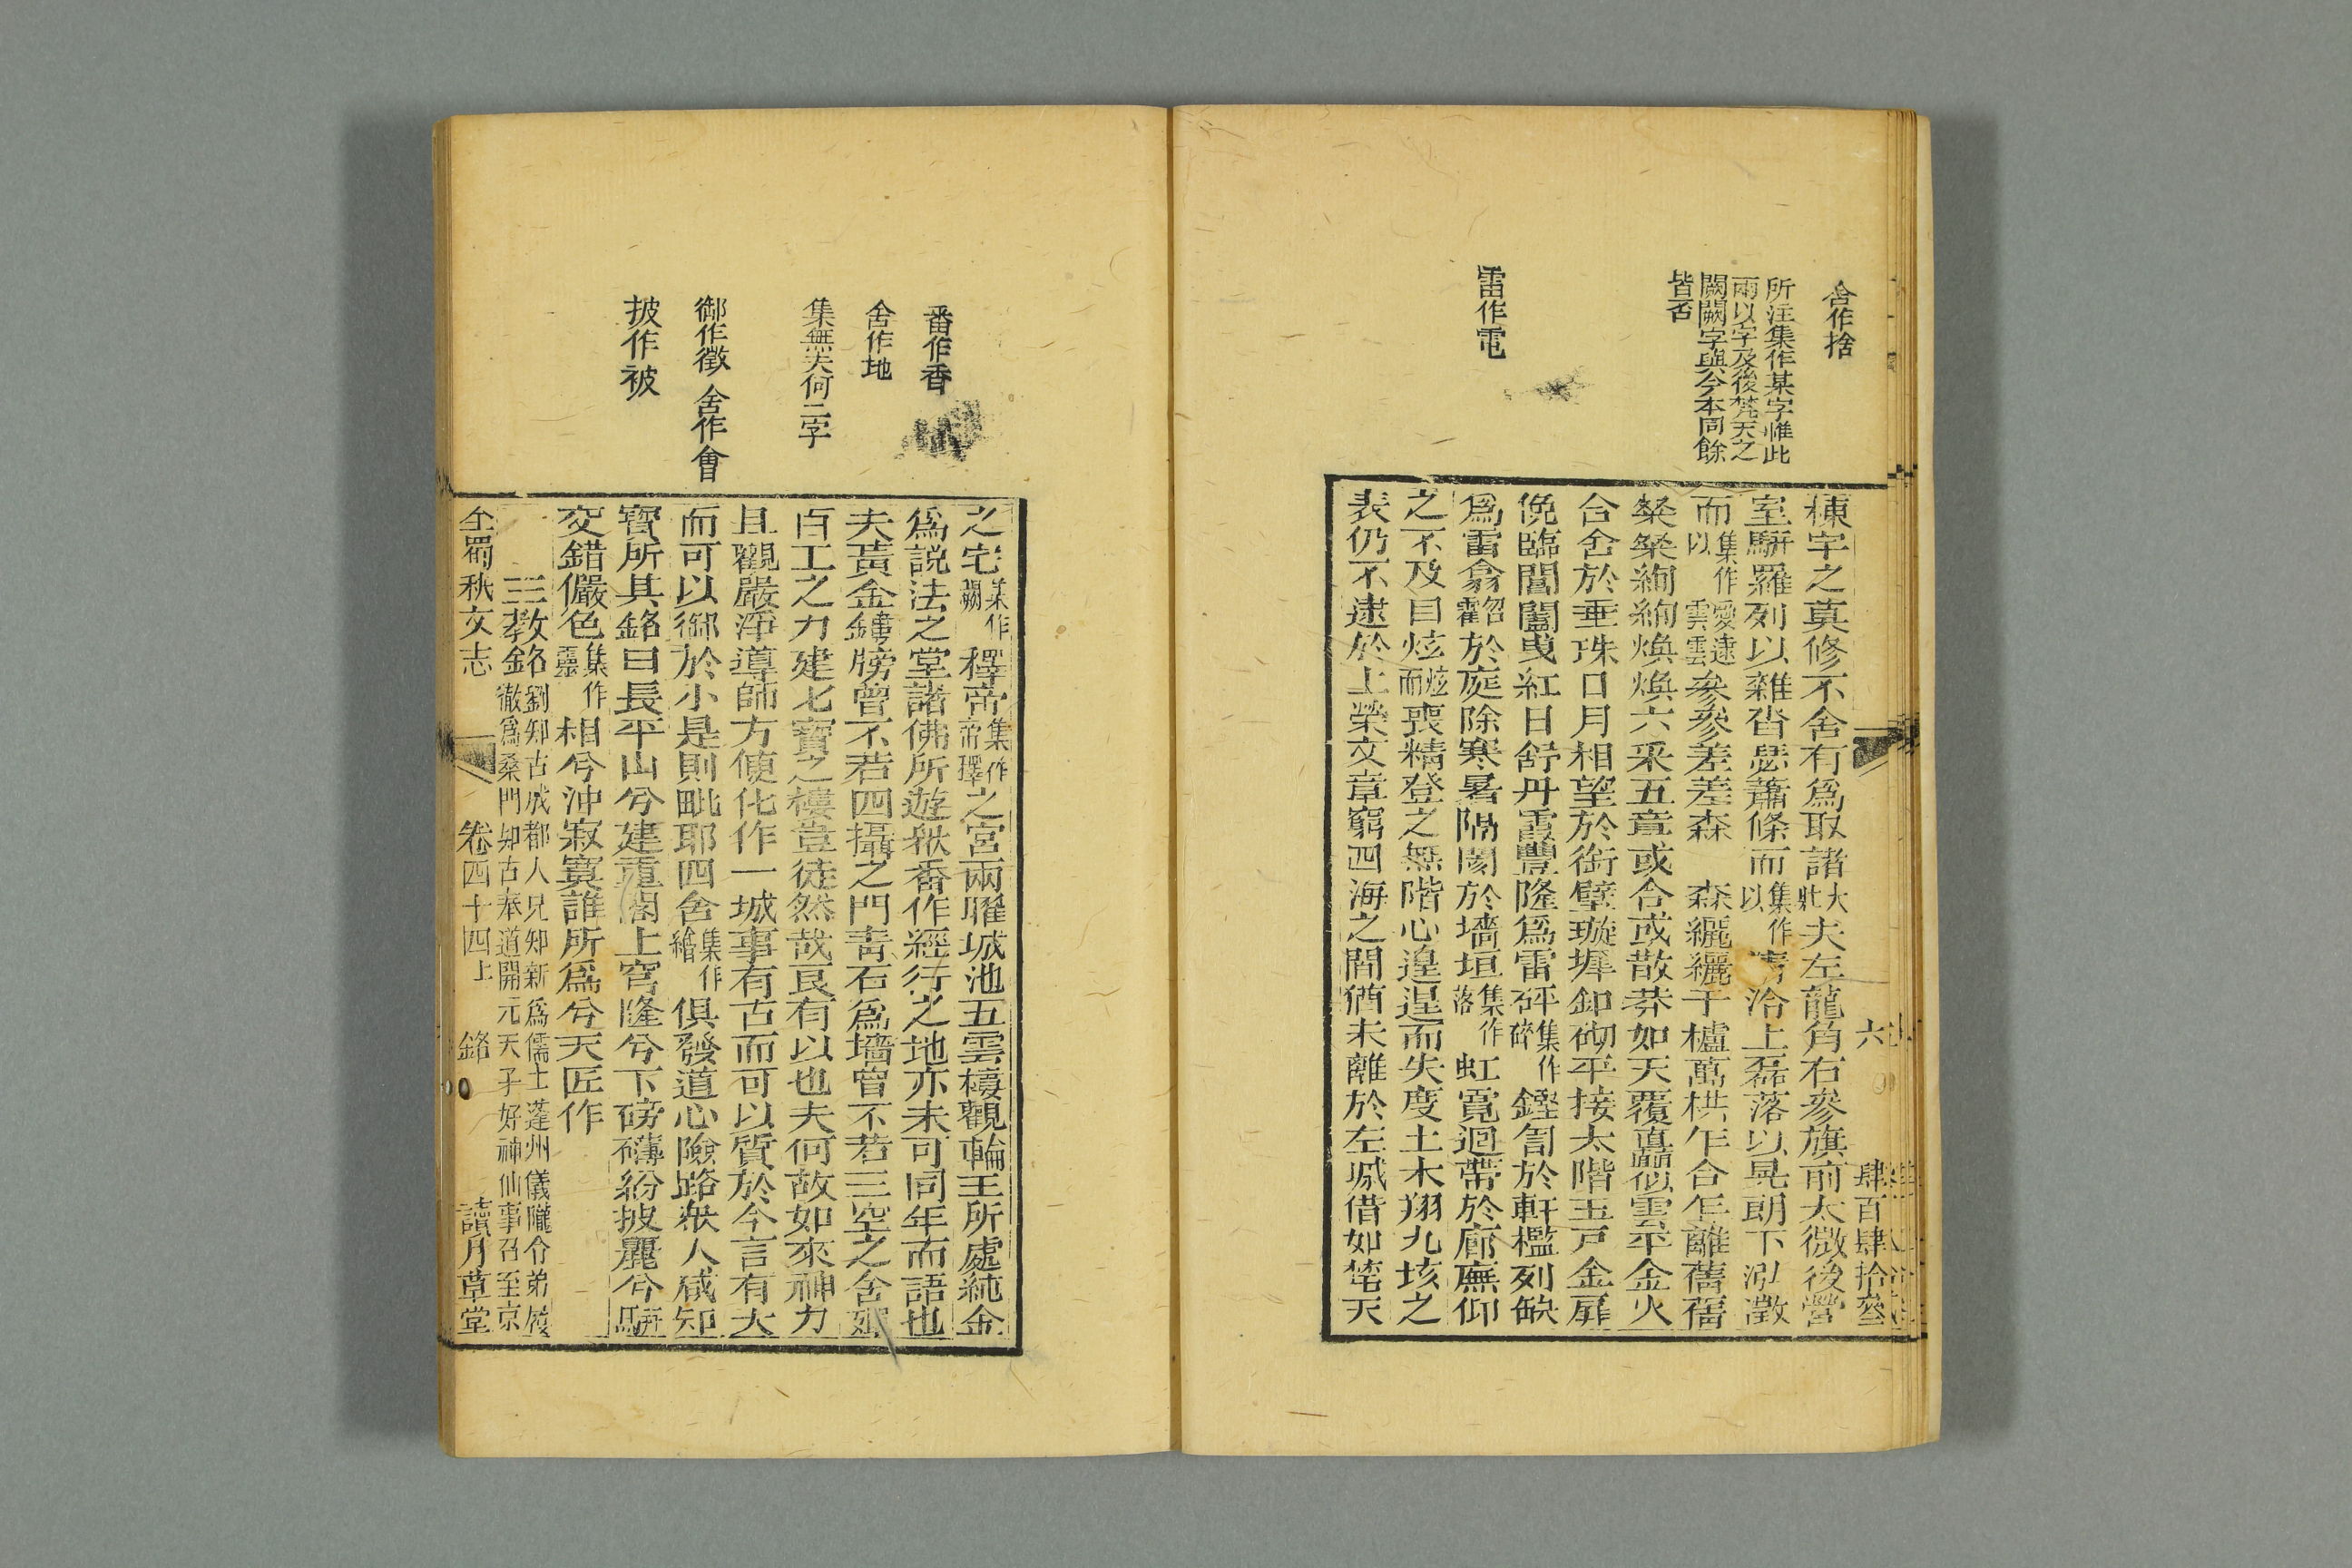 舍作捨
所注集作某字惟此
兩以字及後梵天之
闕闕字與今本同餘
皆否
雷作電
六
肆百肆拾叄
棟宇之莫修不舍有爲取諸大壯夫左龍角右參旗前太微後營
室駢羅列以雜沓瑟蕭條而集作以清泠上磊落以晃朗下泓澂
而集作以靉逮雲雲參參差差森森纚纚千櫨萬栱乍合乍離舊舊
粲粲絢絢煥煥六釆五章或合或散莽如天覆矗似雲平金火
合舍於垂珠日月相望於銜璧璇墀釦砌平接太階玉戸金扉
俛臨閶闔曳紅日舒丹霞豐隆爲雷砰集作碎鏗訇於軒檻列缺
爲雷翕霍於庭除寒暑隔閡於墻垣集作落虹霓迴帶於廊廡仰
之不及目炫炫而喪精登之無階心遑遑而失度土木翔九垓之
表仍不逮於上榮文章窮四海之間猶未離於左墄借如梵天
番作香
舍作地
集無夫何二字
御作徵 舍作會
披作被
之宅集作闕釋帝集作帝釋之宮兩曜城池五雲樓觀輪王所處純金
爲説法之堂諸佛所遊衆香作經行之地亦未可同年而語也
夫黃金鏤牓曾不若四攝之門青石爲墻曾不若三空之舍
百工之力建七寶之樓豈徒然哉良有以也夫何故如來神力
且觀嚴淨導師方便化作一城事有古而可以質於今言有大
而可以御於小是則毗耶四舍集作繪俱發道心險路衆人咸知
寶所其銘曰長平山兮建重閣上穹隆兮下磅礴紛披麗兮駢
交錯儼色集作靈相兮沖寂寞誰所爲兮天匠作
三教銘劉知古成都人兄知新爲儒士蓬州儀隴令弟履
徹爲桑門知古奉道開元天子好神仙事召至京
全蜀秇文志 卷四十四上 銘 讀月草堂